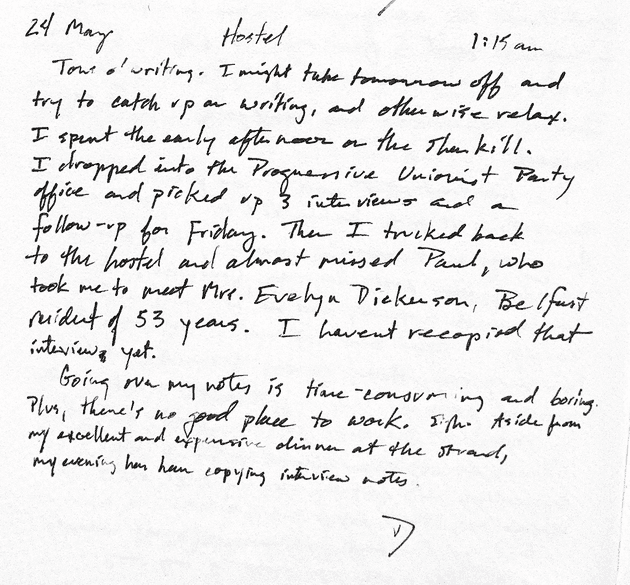 24 May Hostel 1:15 am
Tons o' writing. I might take tomorrow off and
try to catch up on writing, and otherwise relax.
I spent the early afternoon on the Shankill.
I dropped into the Progressive Unionist Party
office and picked up 3 interviews and a
follow-up for Friday. Then I trucked back
to the hostel and almost missed Paul, who
took me to meet Mrs. Evelyn Dickerson, Belfast
resident of 53 years. I haven't recopied that
interview yet.
Going over my notes is time-consuming and boring.
Plus, there's no good place to work. Sigh. Aside from
my excellent and expensive dinner at the Strand,
my evening has been copying interview notes.
D